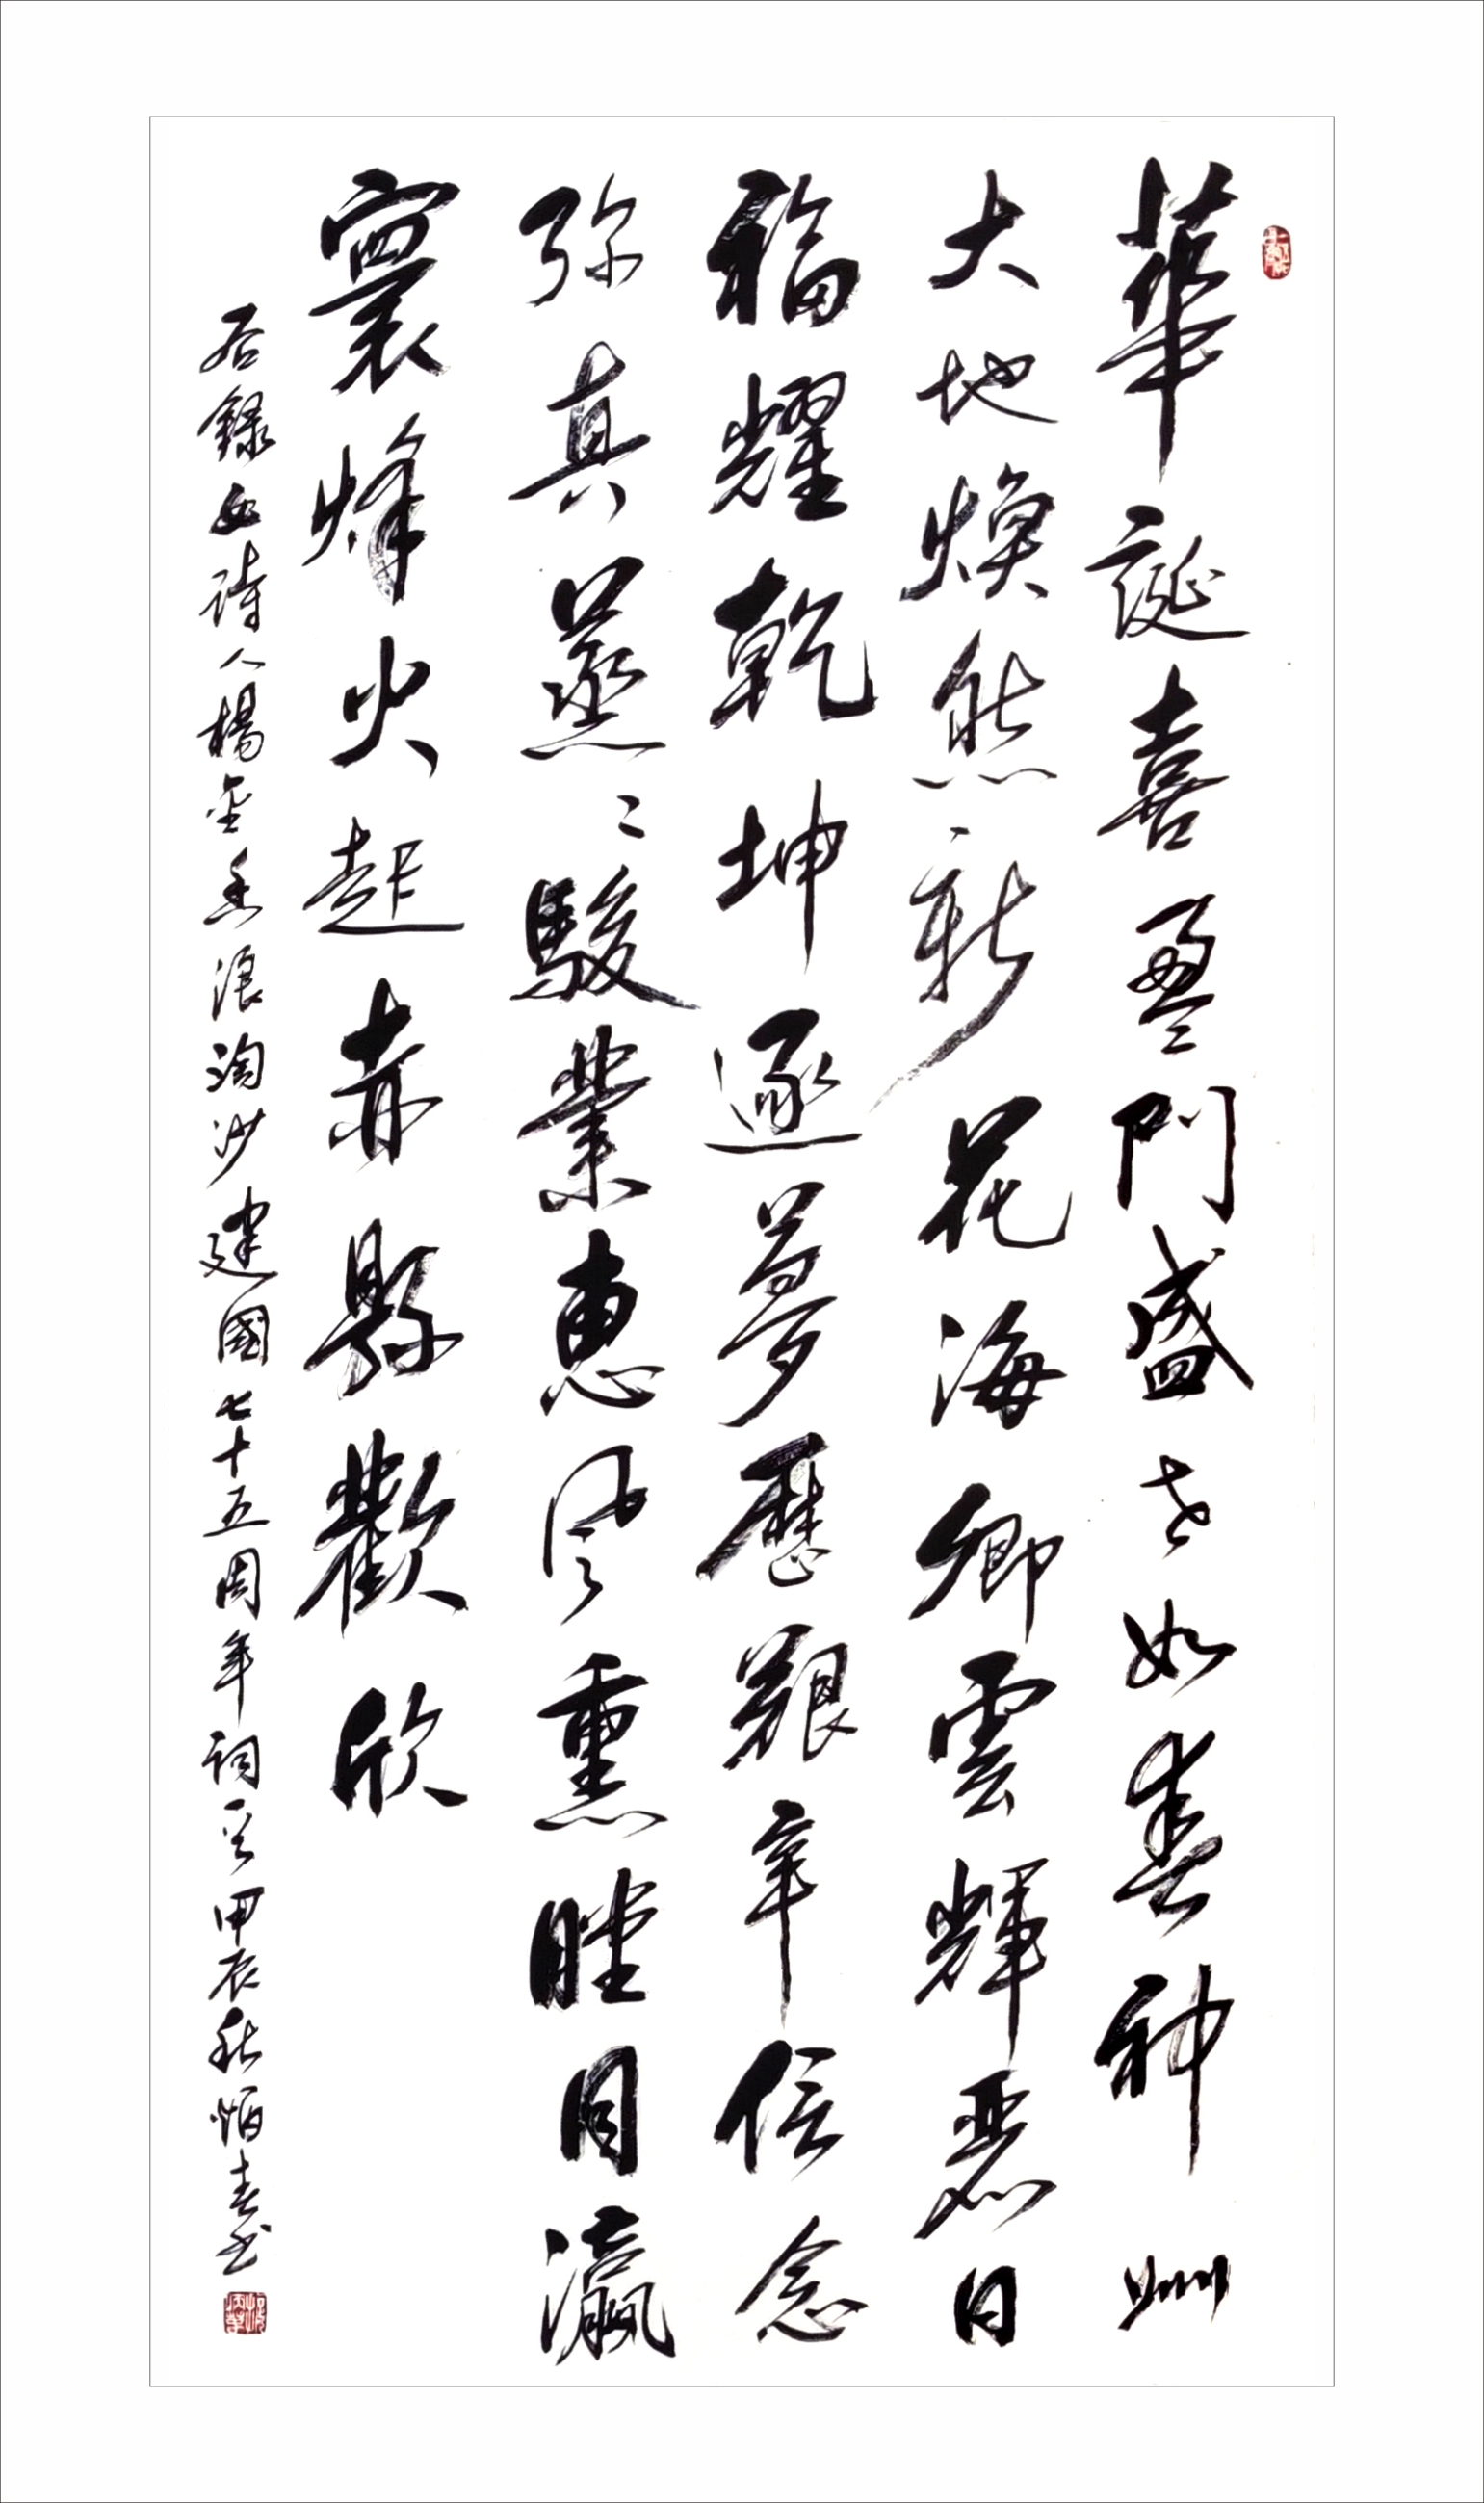 華誕喜盈門盛世如春神州
大地煥然新花海卿雲輝麗日
福耀乾坤逐夢歷艱辛信念
弥真蒸〻駿業惠风熏睦月瀛
寰烽火起赤縣歡欣
右錄女詩人楊金香浪淘沙建國七十五周年詞一首甲辰秋炳春書